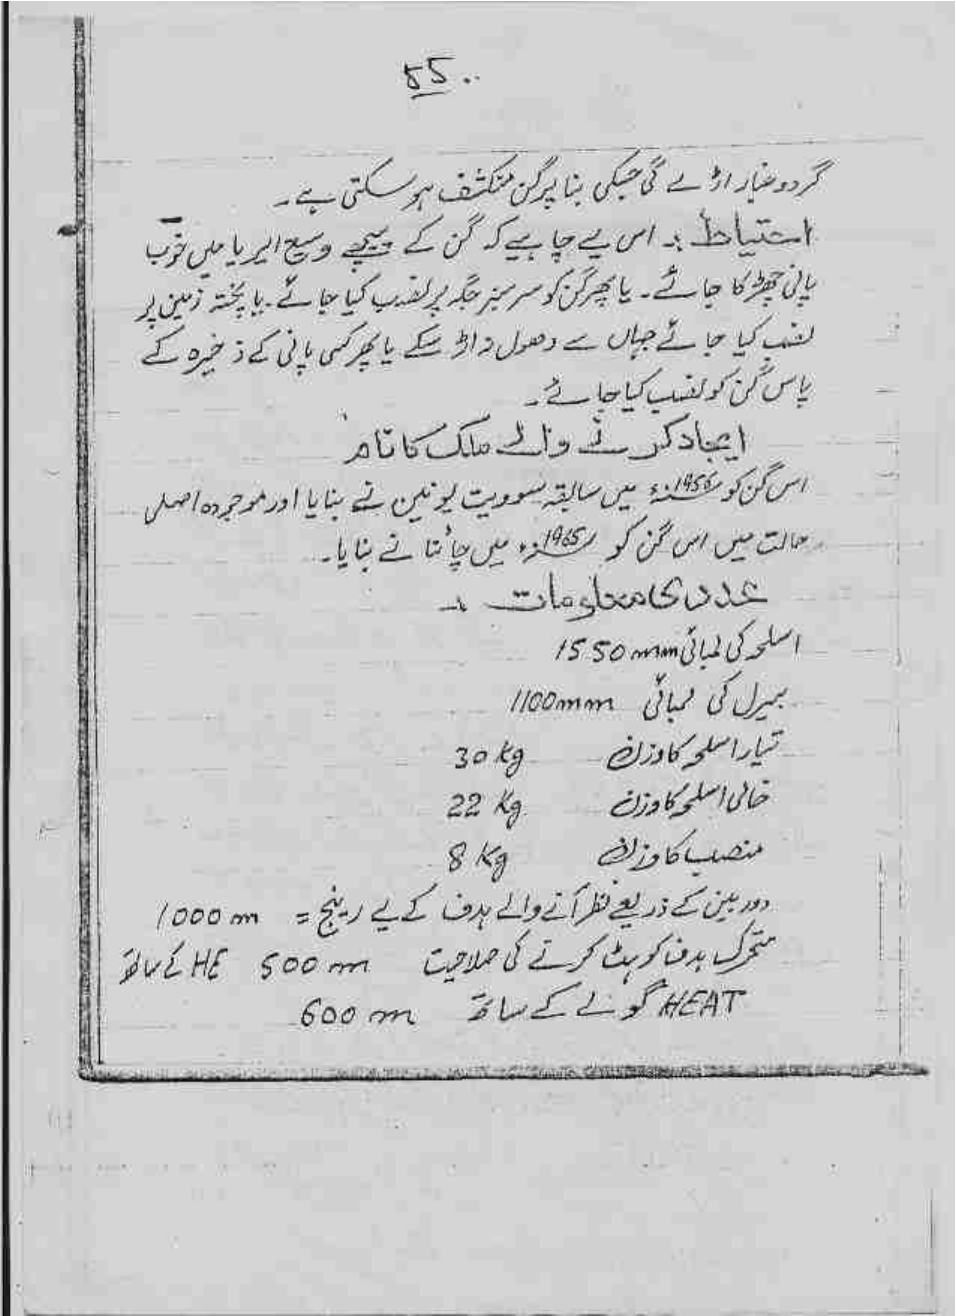 ۵۵..
گردوغبار اڑے گی جسکی بنا پر گن منکشف ہوسکتی ہے۔
احتیاط :۔ اس لیے چاہیے کہ گن کے پیچھے وسیع ایریا میں خوب
پانی چھڑکا جائے۔ یا پھر گن کو سرسبز جگہ پر نصب کیا جائے۔ یا پختہ زمین پر
نصب کیا جائے جہاں سے دھول نہ اڑ سکے یا پھر کسی پانی کے ذخیرہ کے
پاس گن کو نصب کیا جائے۔
ایجاد کرنے والے ملک کا نام
اس گن کو 1956ء میں سابقہ سوویت یونین نے بنایا اور موجودہ اصلی
حالت میں اس گن کو 1965ء میں چائنا نے بنایا۔
عددی معلومات :۔
اسلحہ کی لمبائی 1550mm
بیرل کی لمبائی 1100mm
تیار اسلحہ کا وزن 30 kg
خالی اسلحہ کا وزن 22 Kg
منصب کا وزن 8 Kg
دوربین کے ذریعے نظر آنے والے ہدف کے لیے رینج = 1000 m
متحرک ہدف کو ہٹ کرنے کی صلاحیت 500 m HE کے ساتھ
HEAT گولے کے ساتھ 600 m